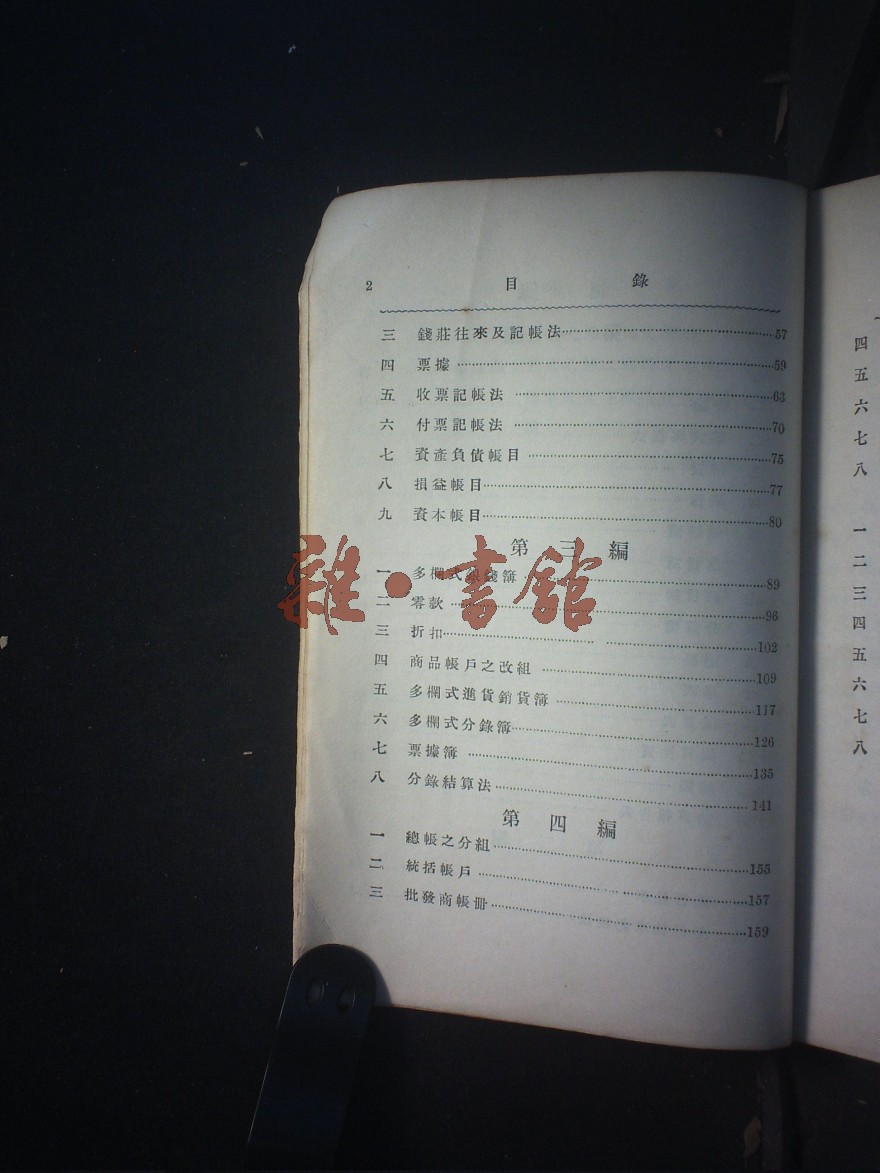 2 目錄
三 錢莊往來及記帳法 57
四 票據 59
五 收票記帳法 63
六 付票記帳法 70
七 資產負債帳目 75
八 損益帳目 77
九 資本帳目 80
第三編
一 多欄式銀錢簿 89
二 零款 96
三 折扣 102
四 商品帳戶之改組 109
五 多欄式進貨銷貨簿 117
六 多欄式分錄簿 126
七 票據簿 135
八 分錄結算法 141
第四編
一 總帳之分組 155
二 統括帳戶 157
三 批發商帳冊 159
雜·書館
四
五
六
七
八
一
二
三
四
五
六
七
八